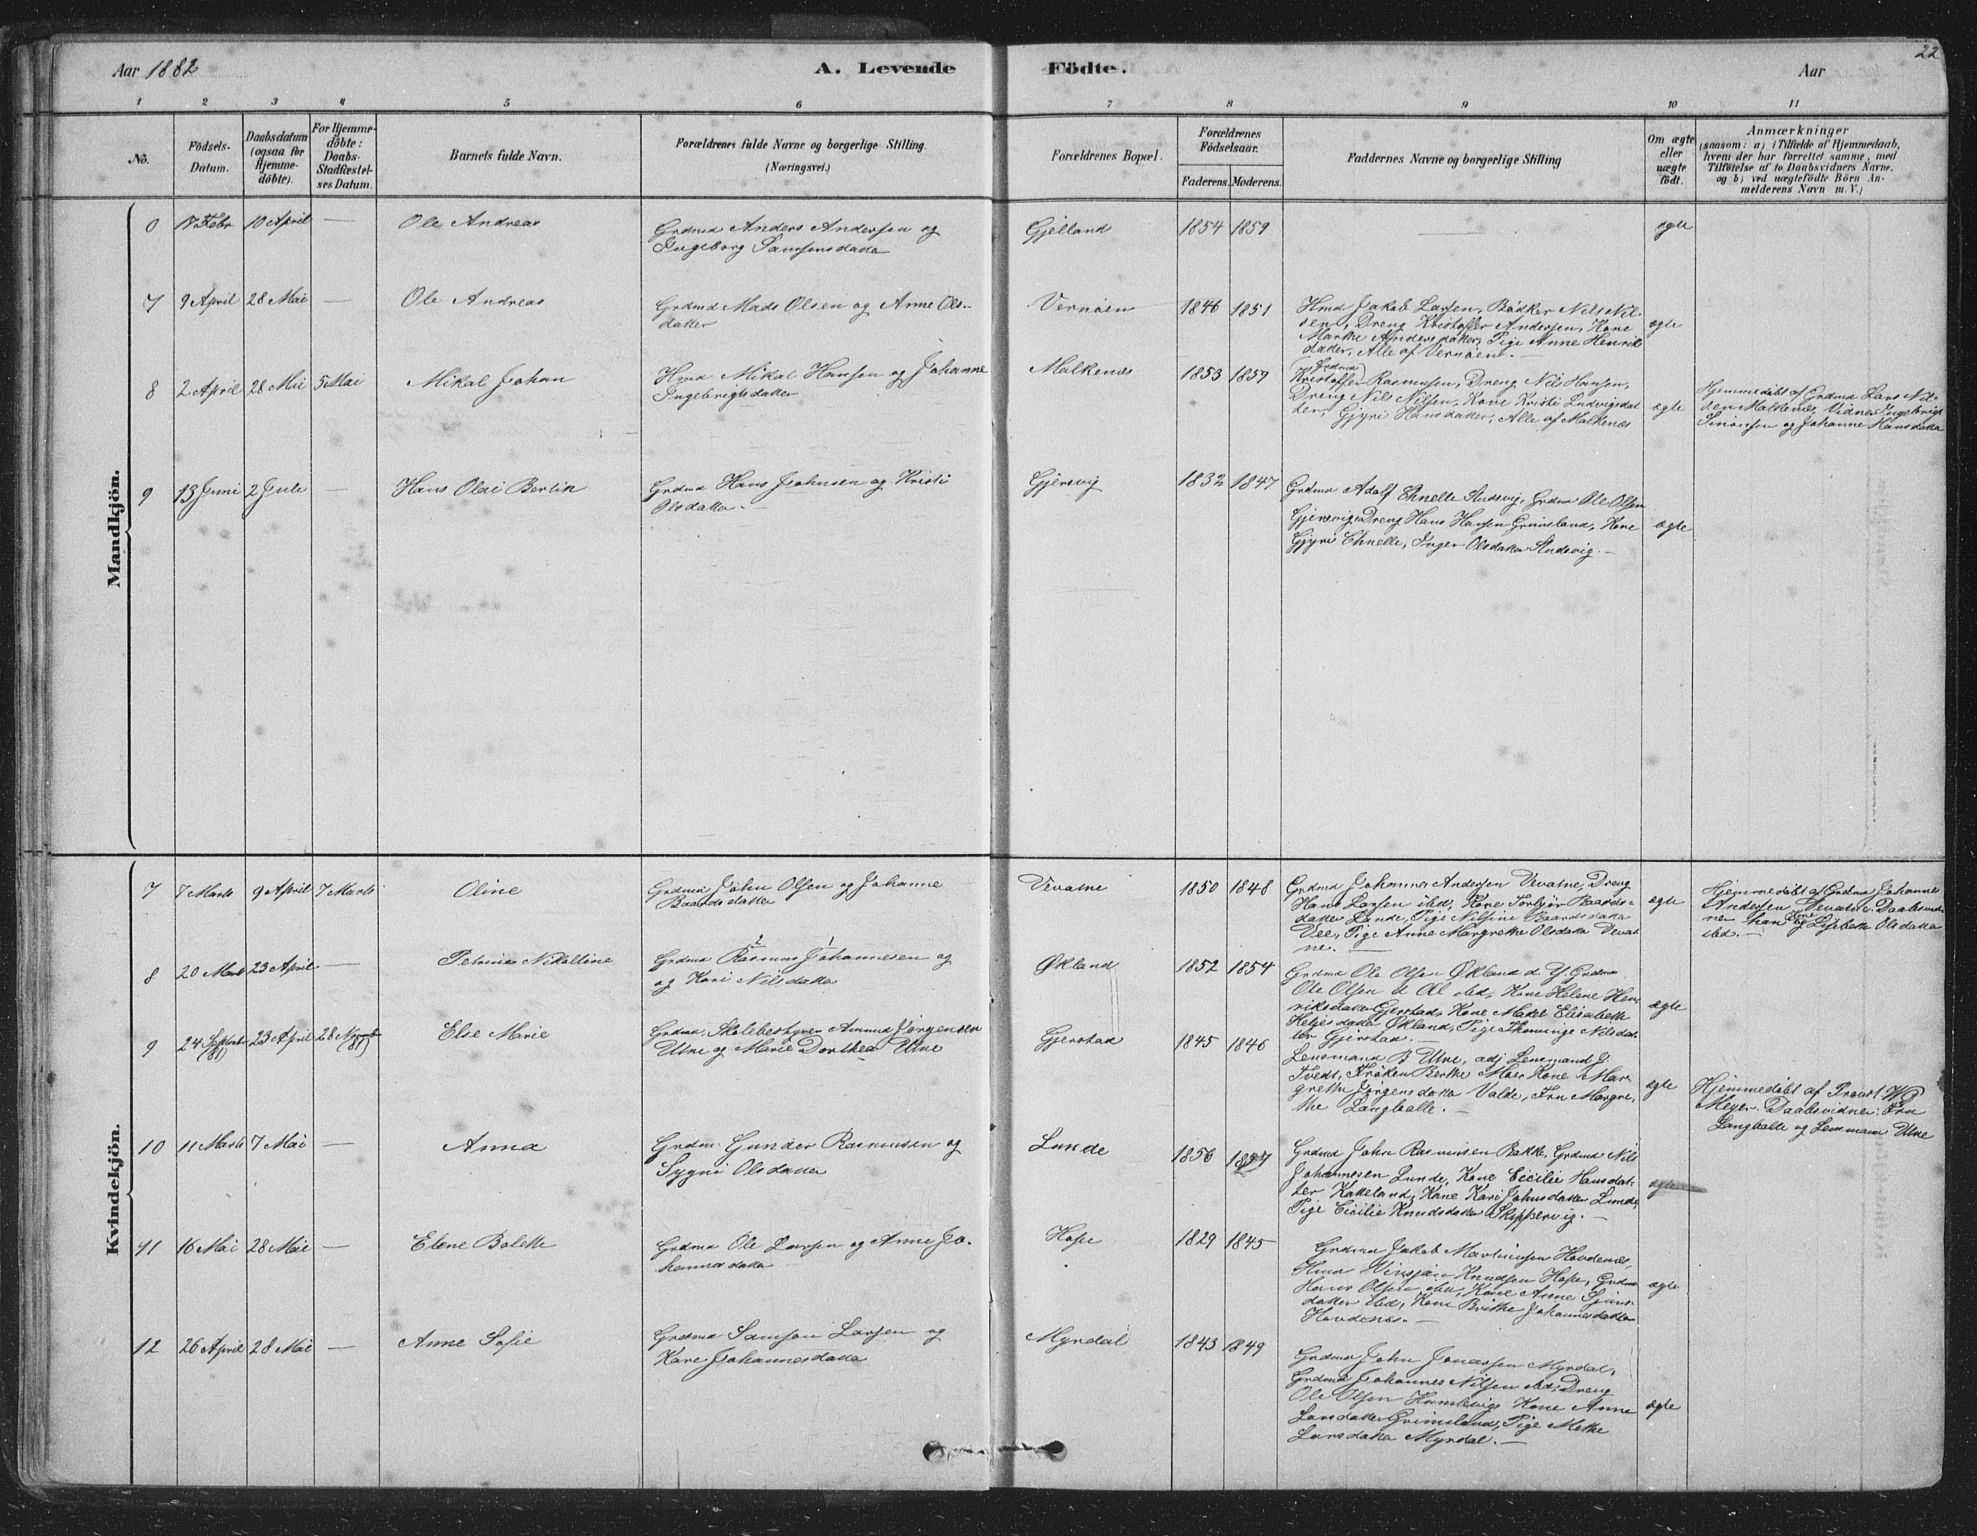 Aar 1882
A. Levende
Födte.
Aar
22
1
2
3
4
5
6
7
8
9
10
11
No.
Födsels-
Datum.
Daabsdatum
(ogsaa for
Hjemme-
döbte).
For Hjemme-
döbte:
Daabs-
Stadfæstel-
ses Datum.
Barnets fulde Navn.
Forældrenes fulde Navne og borgerlige Stilling.
(Næringsvei.)
Forældrenes Bopæl.
Forældrenes
Födselsaar.
Faderens.
Moderens.
Faddernes Navne og borgerlige Stilling
Om ægte
eller
uægte
födt.
Anmærkninger
(saasom: a) i Tilfælde af Hjemmedaab,
hvem der har forrettet samme, med
Tilföielse af to Daabsvidners Navne,
og b) ved uægtefödte Börn An-
melderens Navn m. V.)
Mandkjön.
17 Febr
10 April
—
Ole Andreas
Grdmd Anders Andersen og
Ingeborg Samsonsdatter
Gjelland
1854
1859
ægte
7
9 April
28 Mai
—
Ole Andreas
Grdmd Mads Olsen og Anne Ols-
datter
Vernøen
1846
1851
Hmd Jakob Larsen, Bødker Nils Nil-
sen, Dreng Kristoffer Andersen, Kone
Marthe Andersdatter, Pige Anne Henrik
datter, Alle af Vernøen. —
ægte
8
2 April
28 Mai
5 Mai
Mikal Johan
Hmd Mikal Hansen og Johanne
Ingebrigtsdatter
Malkenæs
1853
1859
Grdmd
Kristoffer Rasmussen, Dreng Nils Hansen,
Dreng Nils Nilsen, Kone Kristi Ludvigsdat
ter, Gjyri Hansdatter, Alle af Malkenæs
ægte
Hjemmedøbt af Grdmd Lars Nil-
sen Malkenæs, Vidner Ingebrigt
Simonsen og Johanne Hansdatter
9
13 Juni
2 Juli
—
Hans Olai Bertin
Grdmd Hans Johnsen og Kristi
Olsdatter. —
Gjersvig
1832
1847
Grdmd Adolf Chnelle Sundsvig, Grdmd Ole Olsen
Gjersvig, Dreng Hans Hansen Grimsland, Kone
Gjyri Chnelle, Inger Olsdatter Sundsvig. —
ægte
Kvindekjön.
7
7 Marts
9 April
7 Marts
Oline
Grdmd John Olsen og Johanne
Baardsdatter
Vevatne
1850
1848
Grdmd Johannes Andersen Vevatne, Dreng
Hans Larsen ibid, Kone Torbjør Baards-
datter Lunde, Pige Nilsine Baardsdatter
Vee, Pige Anne Margrethe Olsdatter Vevat
ne. —
ægte
Hjemmedøbt af Grdmd Johannes
Andersen Vevatne. Daabsvid-
ner han og Lisbeth Olsdatter
ibid. —
8
20 Marts
23 April
—
Petrine Nikoline
Grdmd Rasmus Johannesen og
og Kari Nilsdatter
Økland
1852
1854
Grdmd Ole Olsen Økland d. Y. Grdmd
Ole Olsen d Æl ibid, Kone Helene Hen-
riksdatter Gjerstad, Kone Madel Elisabeth
Helgesdatter Økland, Pige Thorninge Nilsdat
ter Gjerstad. —
ægte
9
24 Septbr
(81)
23 April
28 Novemb
(81)
Else Marie
Grdmd, Skolebestyrer Amund Jørgensen
Utne og Marie Dorthea Utne
Gjerstad
1845
1846
Lensmand B Utne, adj Lensmand J.
Tvedt, Frøken Berthe Moer, Kone Mar-
grethe Jørgensdatter Valde, Fru Margre
the Langballe. —
ægte
Hjemmedøbt af Provst W
Meyer. Daabsvidner: Fru
Langballe og Lensmann Utne
10
11 Marts
7 Mai
—
Anna
Grdm. Gunder Rasmussen og
Sygni Olsdatter
Lunde
1856
1857
Grdmd John Rasmussen Bakke, Grdmd Nils
Johannesen Lunde, Kone Cecilie Hansdat
ter Kakeland, Kone Kari Johnsdatter Lunde,
Pige Cecilie Knudsdatter Skippervig. —
ægte
11
16 Mai
28 Mai
—
Elene Bolette
Grdmd Ole Larsen og Anne Jo-
hannesdatter
Hope
1829
1845
Grdmd Jakob Martinusen Hovdenæs,
Hmd Winsjan Knudsen Hope, Grdmd
Hans Olsen ibid, Kone Anne Sjurs-
datter ibid, Kone Brithe Johannesdatter
Hovdenæs. —
ægte
12
26 April
28 Mai
—
Anne Sofie
Grdmd Samson Larsen og
Kari Johannesdatter
Myrdal
1843
1849
Grdmd John Jonassen Myrdal,
Grdmd Johannes Nilsen ibid, Dreng
Ole Olsen Humlevig, Kone Anne
Larsdatter Grimsland, Pige Methe
Larsdatter Myrdal. —
ægte